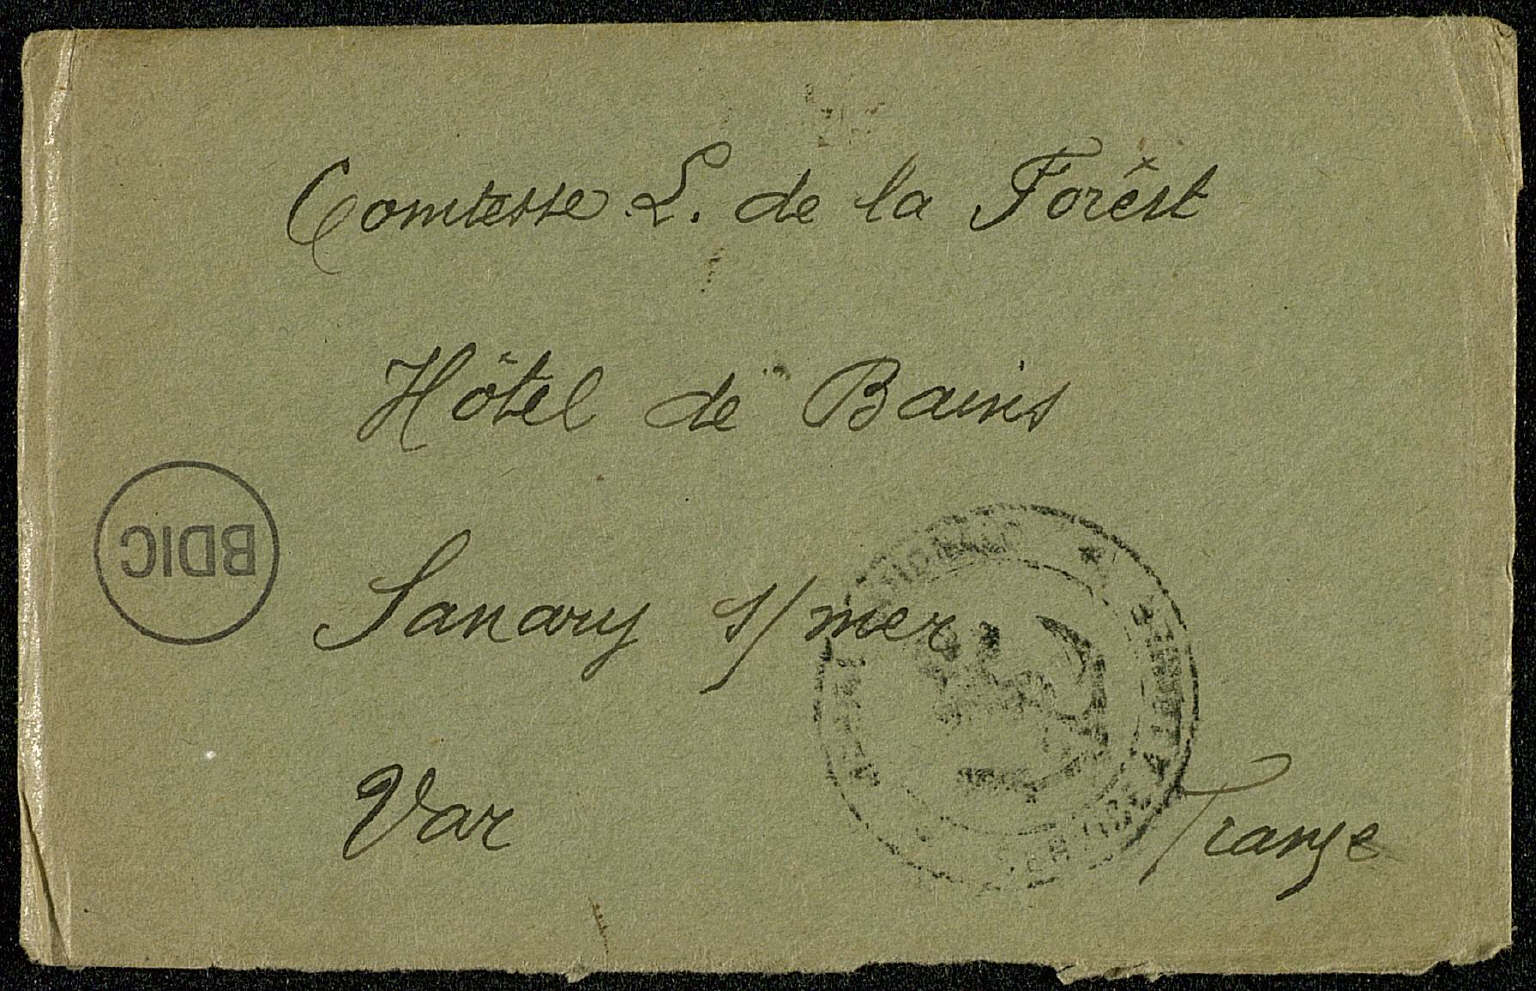 Comtesse L. de la Forêst
Hôtel de Bains
BDIC
Sanary s/mer
Var
France